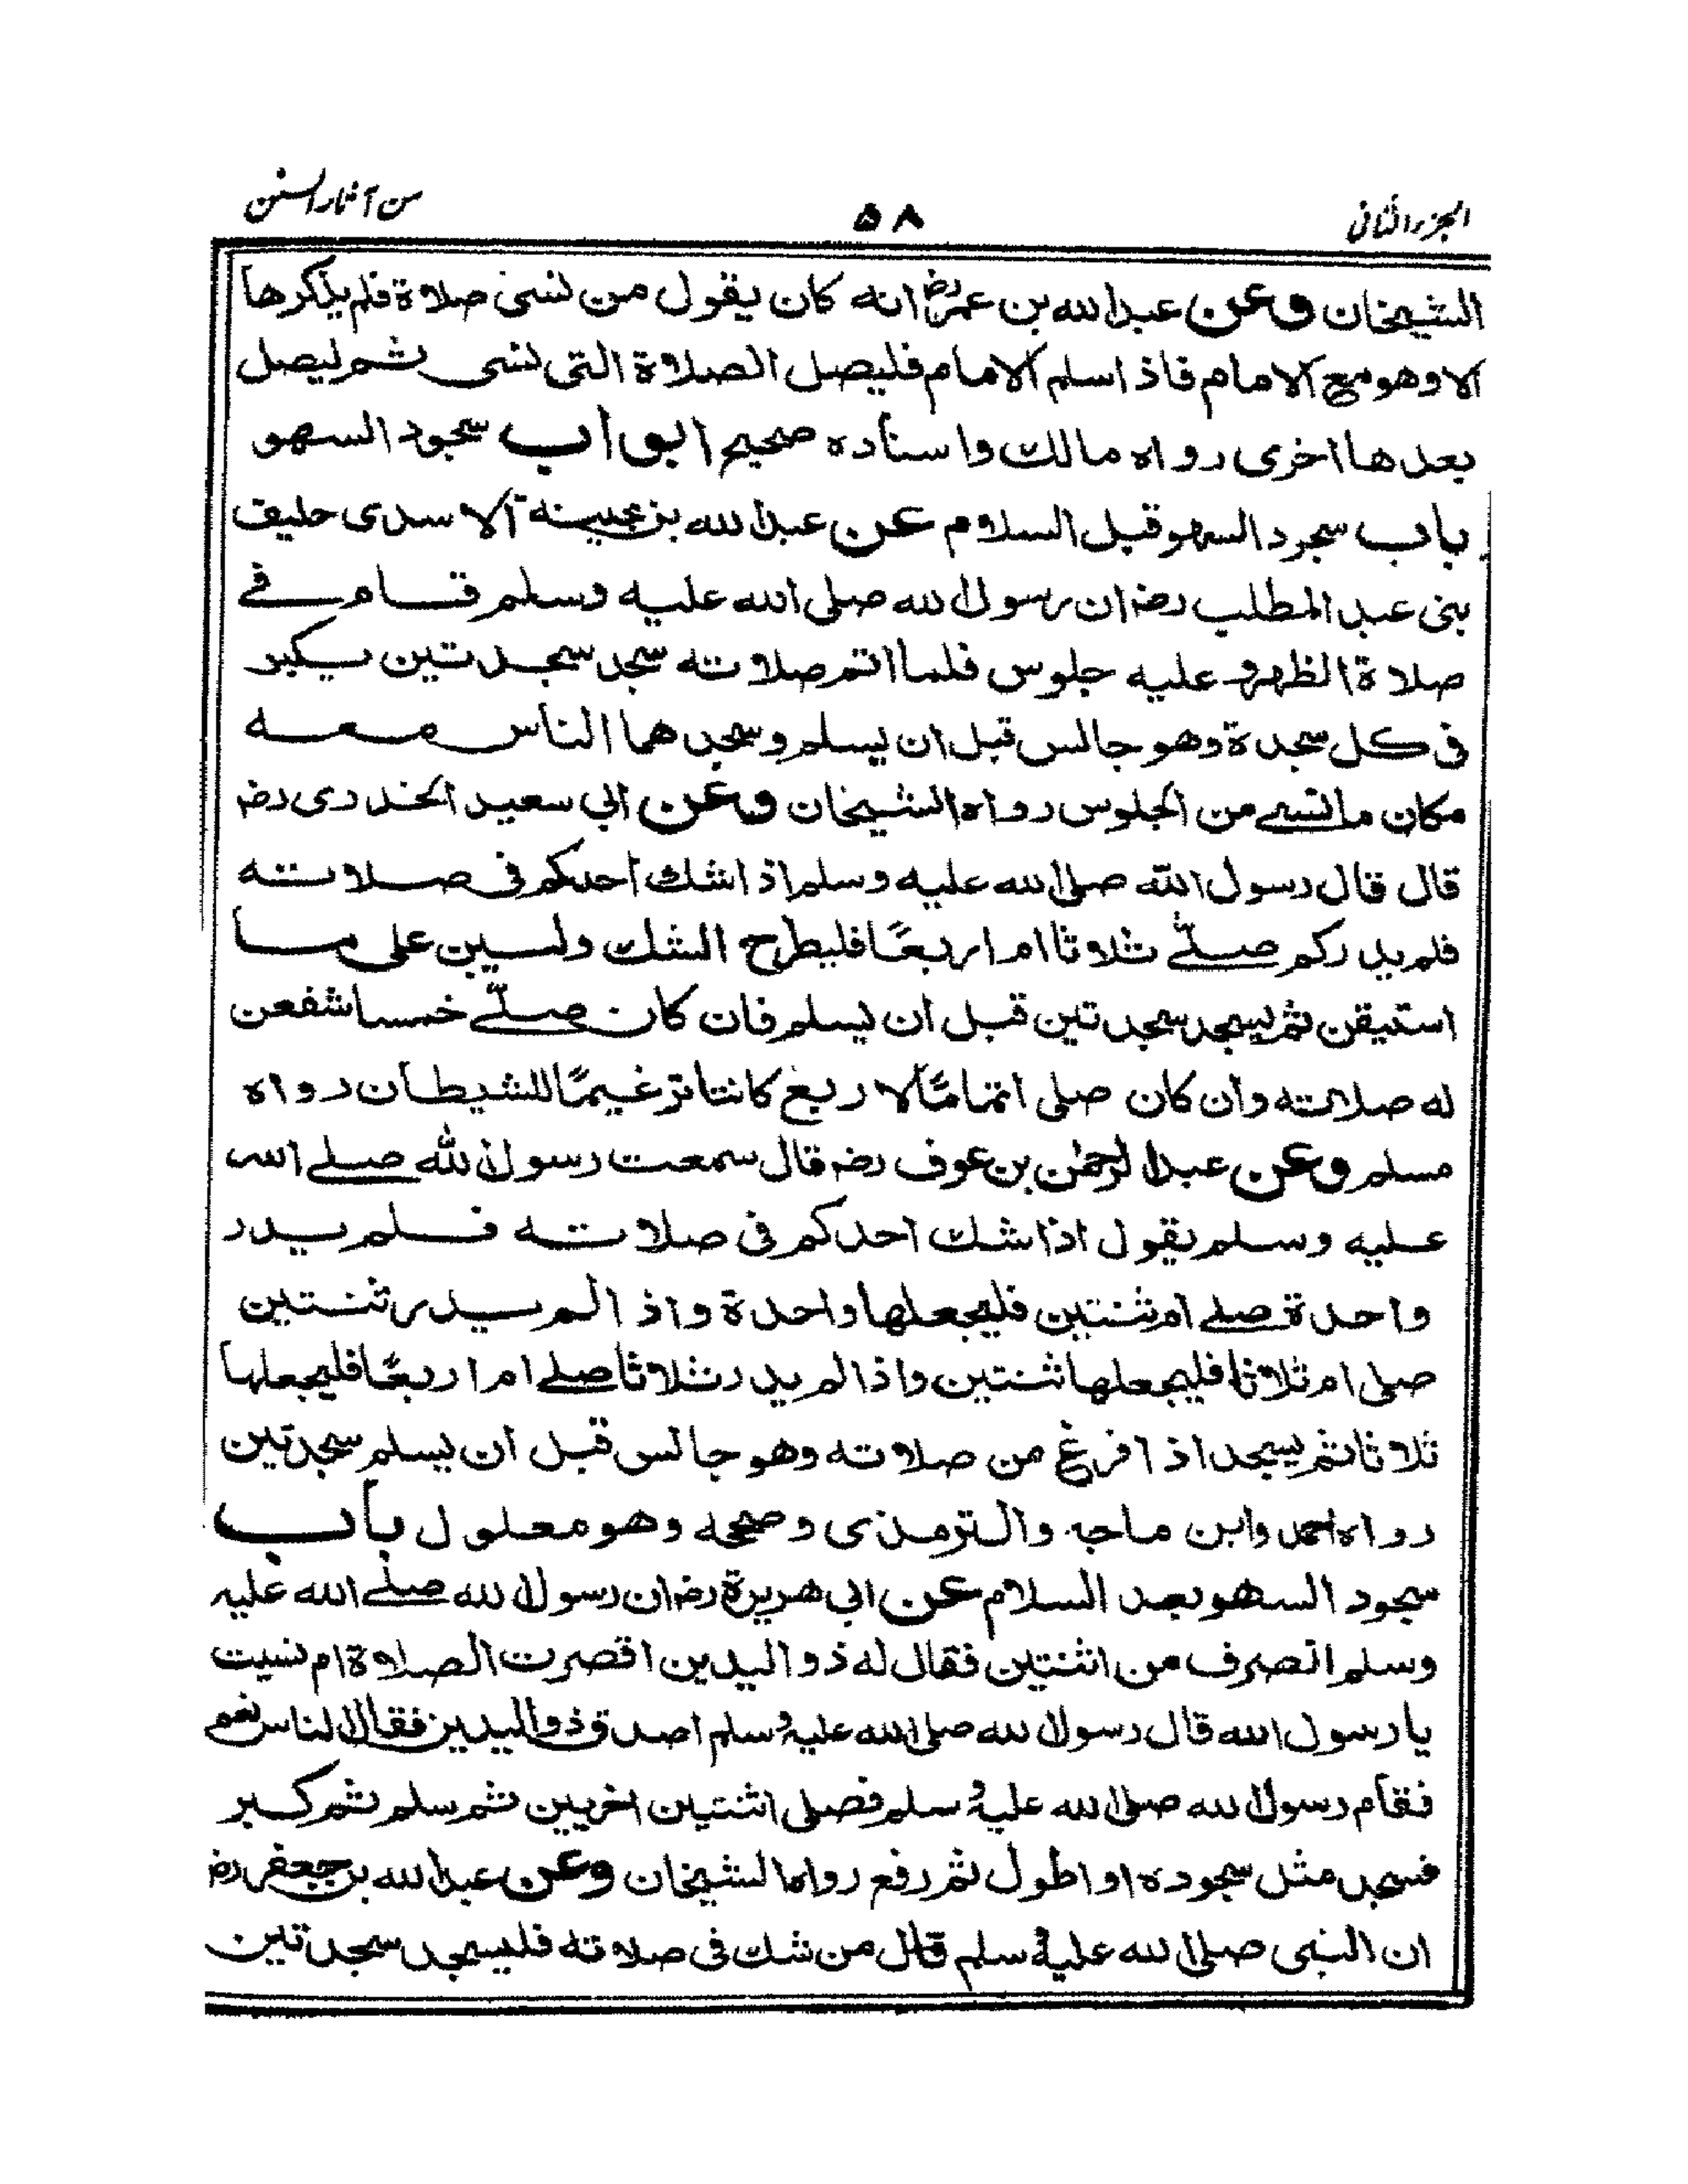 الجزء الثانی ۵۸ من آثار السنن
الشیخان وعن عبد الله بن عمر رضہ انه كان یقول من نسی صلاة فلم یذکرها
الا وهو مع الامام فاذا سلم الامام فلیصل الصلاة التی نسی ثم لیصل
بعدها اخری رواه مالك واسناده صحیح ابواب سجود السهو
باب سجود السهو قبل السلام عن عبد الله بن بحینة الاسدی حلیف
بنی عبد المطلب رضہ ان رسول الله صلی الله علیه وسلم قام فی
صلاة الظهر و علیه جلوس فلما اتم صلاته سجد سجدتین یکبر
فی كل سجدة وهو جالس قبل ان یسلم وسجدهما الناس معه
مكان ما نسی من الجلوس رواه الشیخان وعن ابی سعید الخدری رضہ
قال قال رسول الله صلی الله علیه وسلم اذا شك احدكم فی صلاته
فلم یدر كم صلی ثلاثا ام اربعًا فلیطرح الشك ولیبن علی ما
استیقن ثم یسجد سجدتین قبل ان یسلم فان كان صلی خمسا شفعن
له صلاته وان كان صلی اتمامًا لاربع كانتا ترغیمًا للشیطان رواه
مسلم وعن عبد الرحمٰن بن عوف رضہ قال سمعت رسول الله صلی الله
علیه وسلم یقول اذا شك احدكم فی صلاته فلم یدر
واحدة صلی ام ثنتین فلیجعلها واحدة واذا لم یدر ثنتین
صلی ام ثلاثا فلیجعلها ثنتین واذا لم یدر ثلاثا صلی ام اربعًا فلیجعلها
ثلاثا ثم یسجد اذا فرغ من صلاته وهو جالس قبل ان یسلم سجدتین
رواه احمد وابن ماجه والترمذی وصححه وهو معلول باب
سجود السهو بعد السلام عن ابی هریرة رضہ ان رسول الله صلی الله علیه
وسلم انصرف من اثنتین فقال له ذو الیدین اقصرت الصلاة ام نسیت
یا رسول الله قال رسول الله صلی الله علیه وسلم اصدق ذو الیدین فقال الناس نعم
فقام رسول الله صلی الله علیه وسلم فصلی اثنتین اخریین ثم سلم ثم كبر
فسجد مثل سجوده او اطول ثم رفع رواه الشیخان وعن عبد الله بن جعفر رضہ
ان النبی صلی الله علیه وسلم قال من شك فی صلاته فلیسجد سجدتین